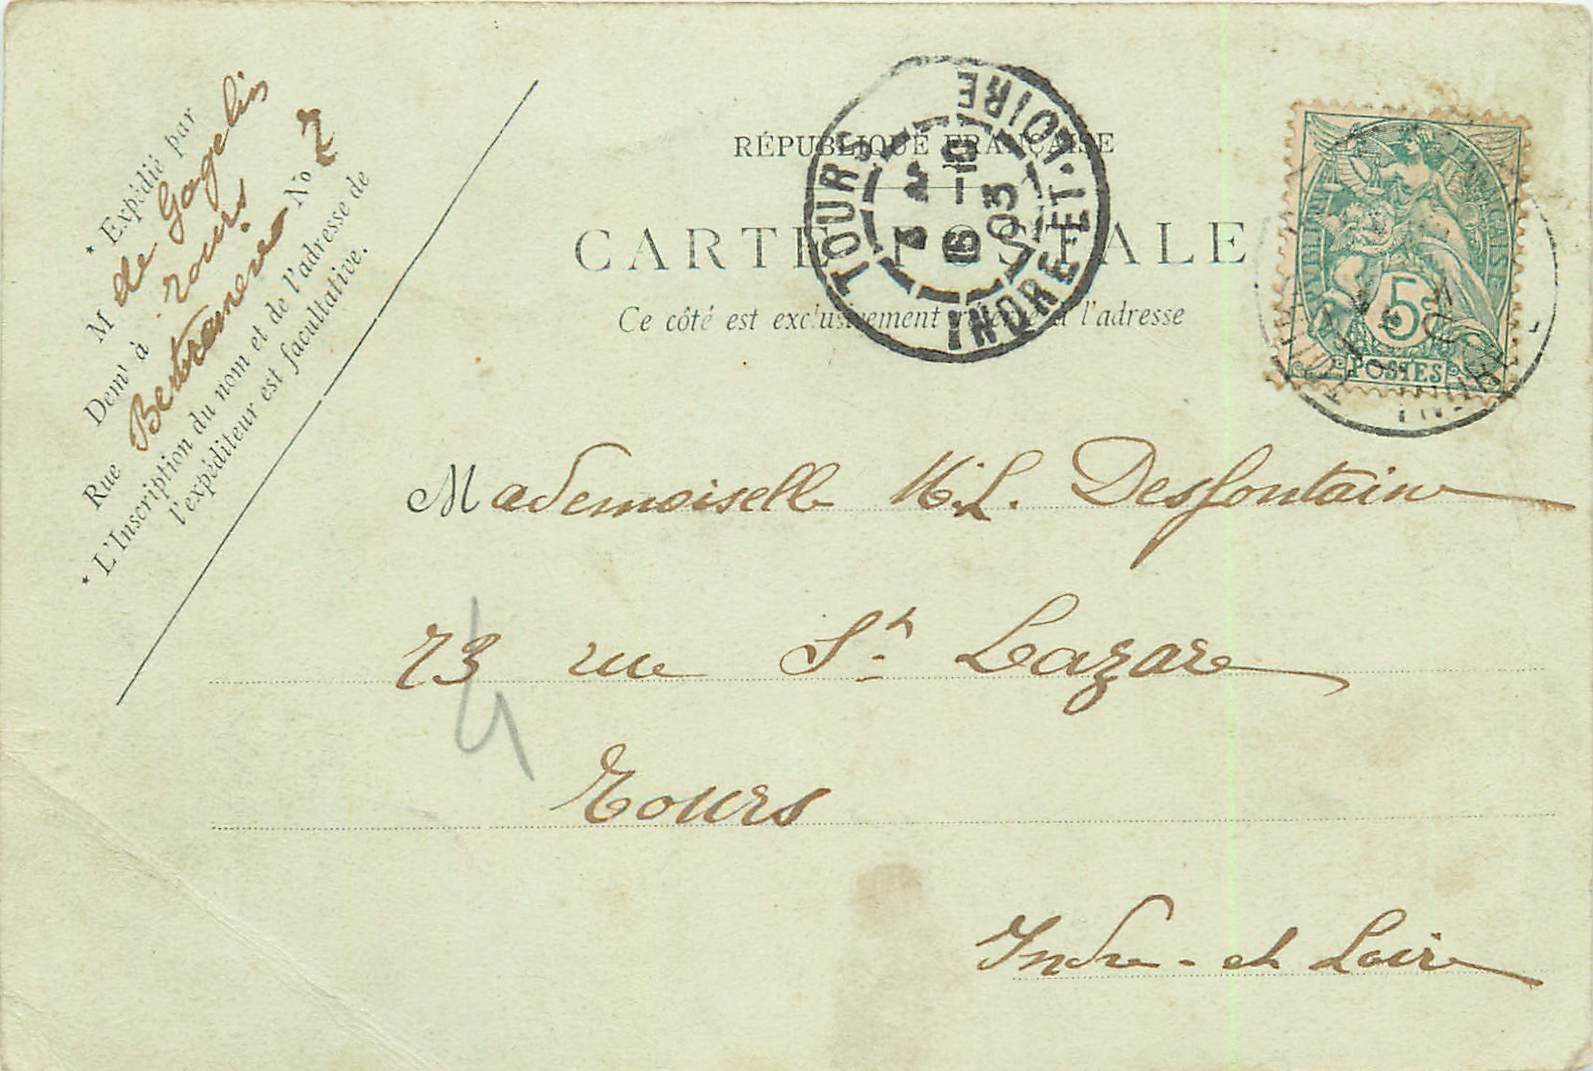 * Expédié par
M de Gagelin
Demt à Tours
Rue No 2
* L'Inscription du nom et de l'adresse de
l'expéditeur est facultative.
RÉPUBLIQUE FRANÇAISE
CARTE POSTALE
Ce côté est exclusivement à l'adresse
TOURS
INDRE-ET-LOIRE
15 -10
03
5
POSTES
Mademoiselle M.L. Desfontaine
73 rue St Lazare
Tours
Indre-et Loire
4